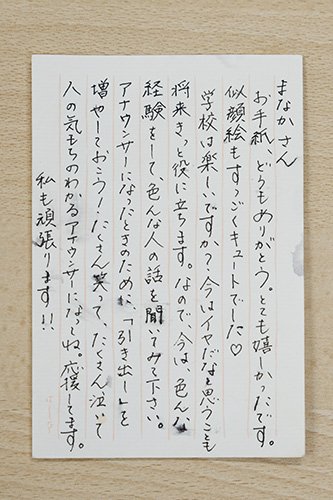 まなかさん
お手紙、どうもありがとう。とても嬉しかったです。
似顔絵もすっごくキュートでした♡
学校は楽しいですか？今はイヤだなと思うことも
将来きっと役に立ちます。なので、今は、色んな
経験をして、色んな人の話を聞いてみて下さい。
アナウンサーになったときのために、「引き出し」を
増やしておこう！たくさん笑って、たくさん泣いて
人の気もちのわかるアナウンサーになってね。応援してます。
私も頑張ります!!